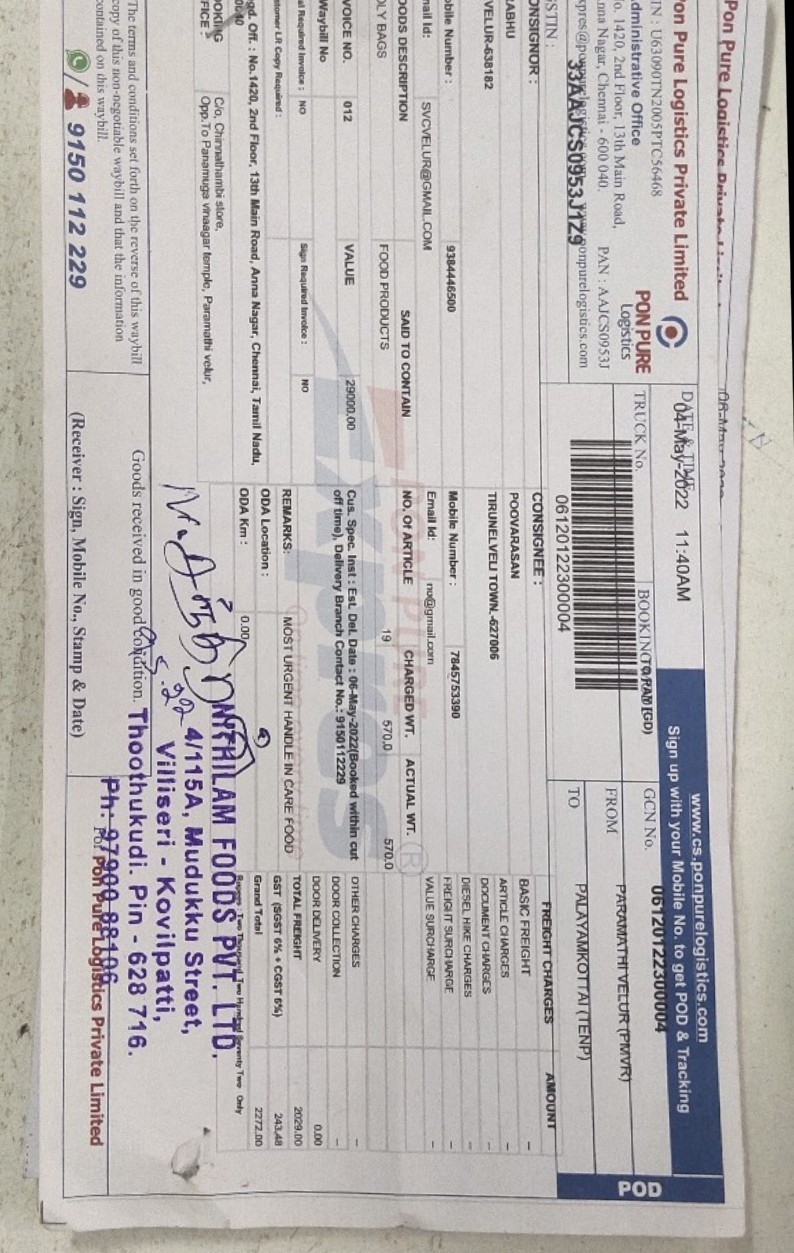 Pon Pure Logistics Private
06-May-2022
Pon Pure Logistics Private Limited
IN : U63090TN2005PTC56468
Administrative Office
No. 1420, 2nd Floor, 13th Main Road,
nna Nagar, Chennai - 600 040.
PAN : AAJCS0953J
STIN :
33AAJCS0953J1Z9
PON PURE
Logistics
DATE & TIME
04-May-2022 11:40AM
TRUCK No.
BOOKING
TO PAY (GD)
06120122300004
www.cs.ponpurelogistics.com
Sign up with your Mobile No. to get POD & Tracking
GCN No.
06120122300004
FROM
PARAMATHI VELUR (PMVR)
TO
PALAYAMKOTTAI (TENP)
POD
ONSIGNOR :
ABHU
VELUR-638182
obile Number : 9384446500
mail Id: SVCVELUR@GMAIL.COM
CONSIGNEE :
POOVARASAN
TIRUNELVELI TOWN.-627006
Mobile Number : 7845753390
Email Id: no@gmail.com
OODS DESCRIPTION SAID TO CONTAIN NO. Of ARTICLE CHARGED WT. ACTUAL WT.
OLY BAGS FOOD PRODUCTS 19 570.0 570.0
VOICE NO. 012 VALUE 29000.00
Waybill No
al Required Invoice : NO Sign Required Invoice : NO
stomer LR Copy Required :
gd. Off. : No.1420, 2nd Floor, 13th Main Road, Anna Nagar, Chennai, Tamil Nadu,
OOKING
FICE
C/o, Chinnathambi store,
Opp.To Panamuga vinaagar temple, Paramathi velur,
Cus. Spec. Inst : Est. Del. Date : 06-May-2022(Booked within cut
off time), Delivery Branch Contact No.: 9150112229
REMARKS: MOST URGENT HANDLE IN CARE FOOD
ODA Location :
ODA Km : 0.00
FREIGHT CHARGES AMOUNT
BASIC FREIGHT –
ARTICLE CHARGES –
DOCUMENT CHARGES –
DIESEL HIKE CHARGES –
FREIGHT SURCHARGE –
VALUE SURCHARGE –
OTHER CHARGES –
DOOR COLLECTION –
DOOR DELIVERY 0.00
TOTAL FREIGHT 2029.00
GST (SGST 6% + CGST 6%) 243.48
Grand Total 2272.00
Rupees : Two Thousand Two Hundred Seventy Two Only
The terms and conditions set forth on the reverse of this waybill
copy of this non-negotiable waybill and that the information
contained on this waybill.
9150 112 229
Goods received in good condition.
(Receiver : Sign, Mobile No., Stamp & Date)
NITHILAM FOODS PVT. LTD,
4/115A, Mudukku Street,
Villiseri - Kovilpatti,
Thoothukudi. Pin - 628 716.
Ph: 97900 88106
For Pon Pure Logistics Private Limited